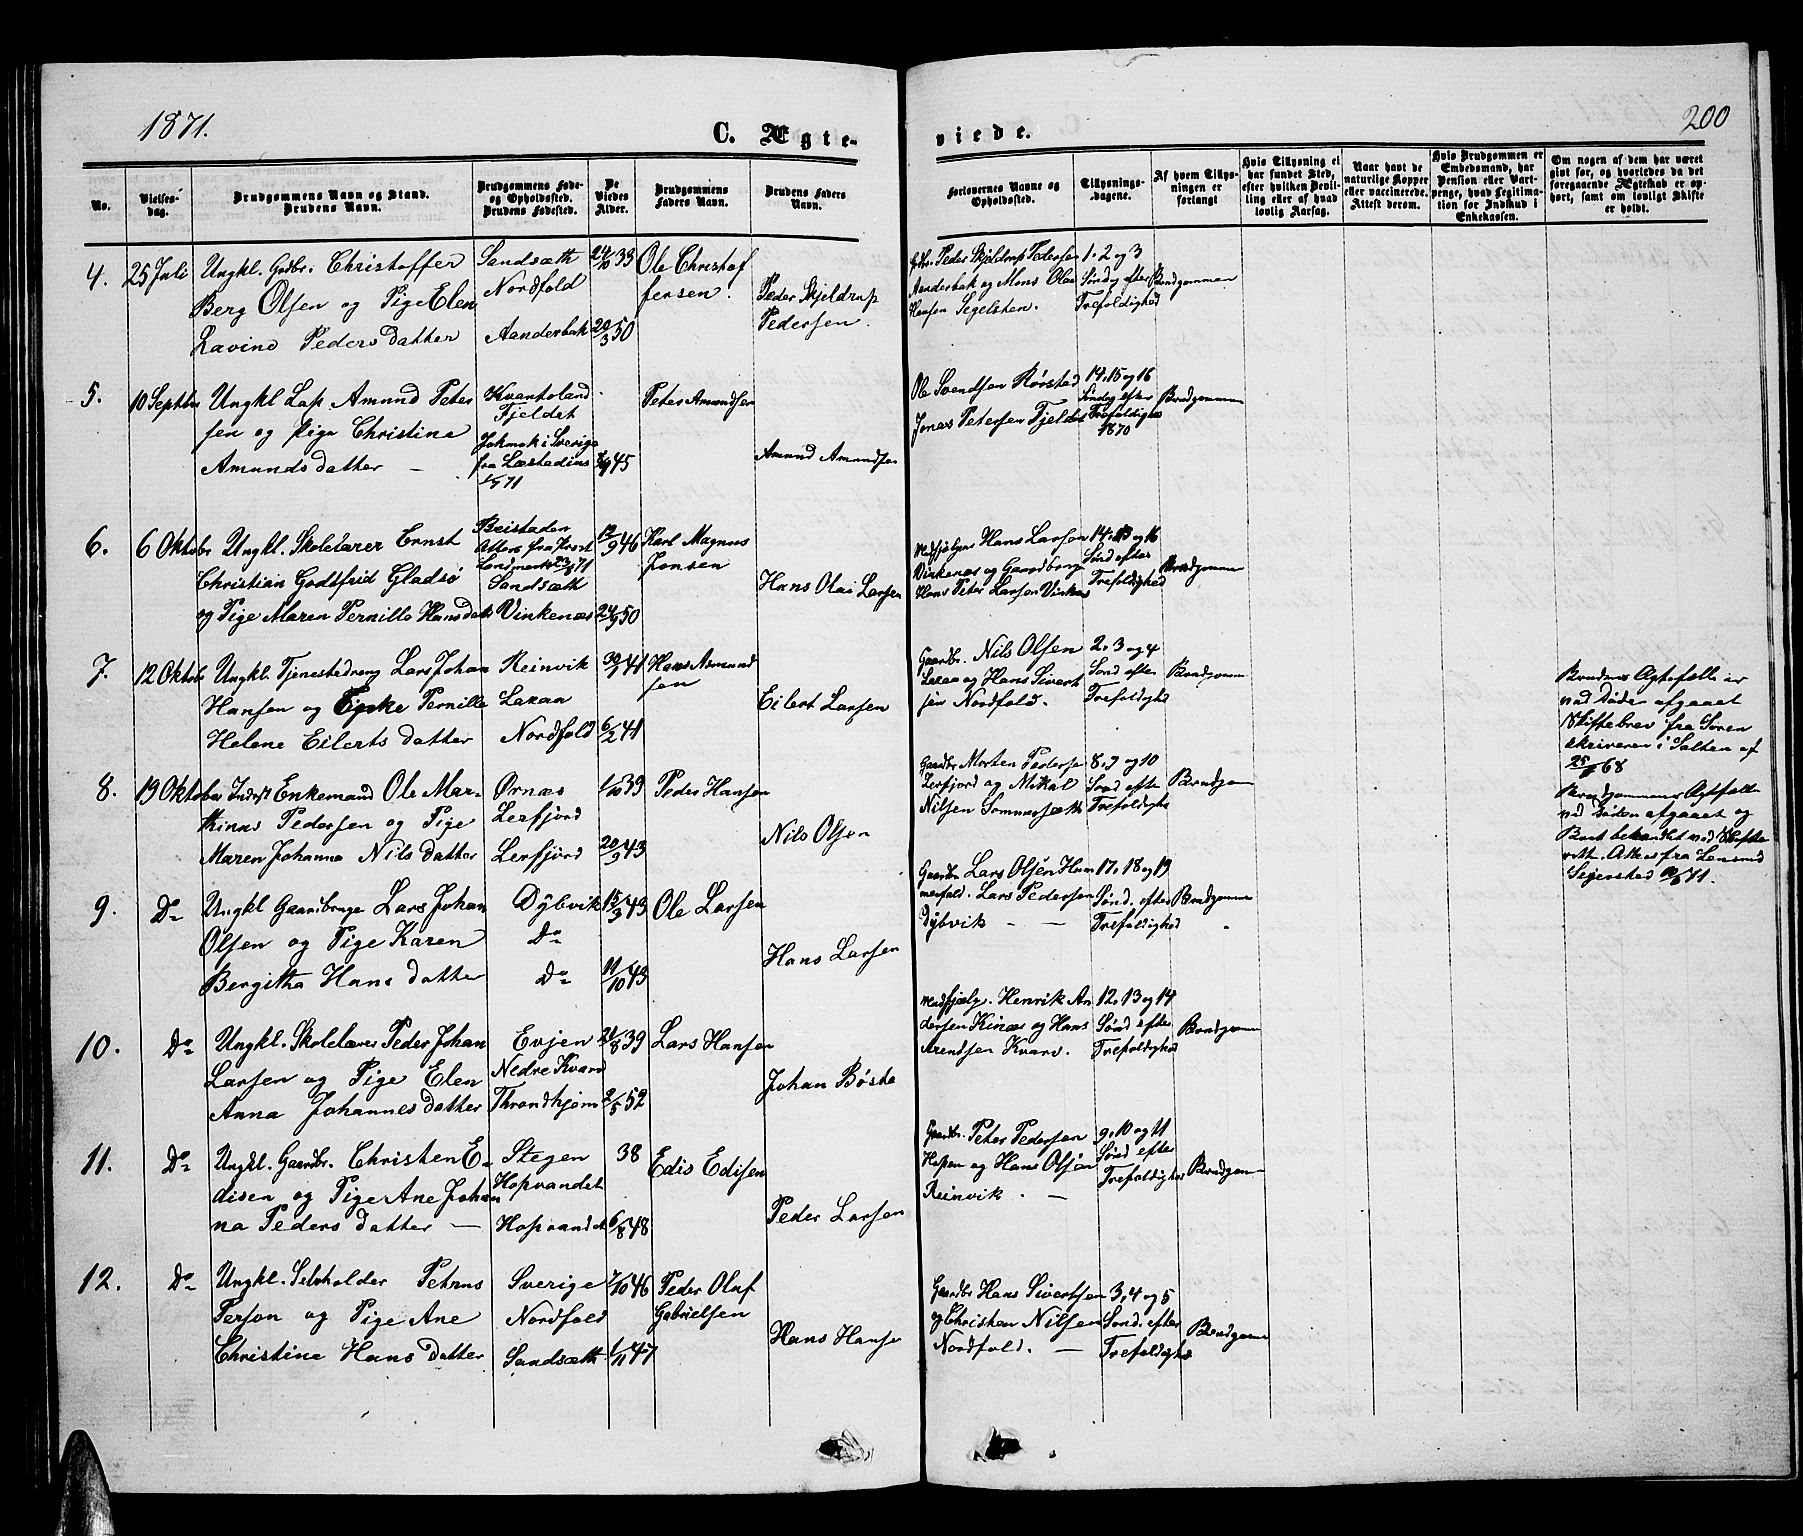 1871.
C. Ægte-
viede.
200
No.
Vielses-
dag.
Brudgommens Navn og Stand.
Brudens Navn.
Brudgommens Føde-
og Opholdssted.
Brudens Fødested.
De
Viedes
Alder.
Brudgommens
Faders Navn.
Brudens Faders
Navn.
Forlovernes Navne og
Opholdssted.
Tillysnings-
dagene.
Af hvem Tillys-
ningen er
forlangt
Hvis Tillysning ei
har fundet Sted,
efter hvilken Bevil-
ling eller af hvad
lovlig Aarsag.
Naar havt de
naturlige Kopper
eller vaccinerede.
Attest derom.
Hvis Brudgommen er
Embedsmand, har
Pension eller Vart-
penge, hvad Legitima-
tion for Indskud i
Enkekassen.
Om nogen af dem har været
givt før, og hvorledes da det
foregaaende Ægteskab er op-
hørt, samt om lovligt Skifte
er holdt.
4. 25 Juli
Ungkl. Gdbr. Christoffer
Berg Olsen og Pige Elen
Lavine Peders datter
Sandsæth
Nordfold
Aanderbak
24/10 33
20/3 50
Ole Christof
fersen.
Peder Skjeldrup
Pedersen.
Gdbr. Peder Skjeldrup Pedersen
Aanderbak og Mons Olai
Hansen Segelsten.
1. 2 og 3
Søndg efter
Trefoldighed
Brudgommen
5. 10 Septbr
Ungkl Lap Amund Peter
sen og Pige Christina
Amunds datter —
Kvantoland
Fjeldet
Jokmok i Sverige
fra Læstadius
71
45
Peter Amundsen
Amund Amundsen
Ole Svendsen Rørstad
Jonas Petersen Fjeldet
14, 15 og 16
Søndag efter
Trefoldighe
1870
Brudgommen
6. 6 Oktobr
Ungkl. Skolelærer Ernst
Christian Godtfrid Gladsø
og Pige Maren Pernille Hansdatt
Beistaden
Attest fra Provst
Landmark 71
Sandsæth
Vinkenæs
12/9 46
24/9 50
Karl Magnus
Jonsen
Hans Olai Larsen
Medhjælper Hans Larsen
Vinkenæs og Gaardbruger
Hans Peter Larsen Vinkenæs
14. 15 og 16
Sønd efter
Trefoldighed
Brudgomme
7. 12 Oktobr
Ungkl. Tjenestedreng Lars Johan
Hansen og Enke Pernille
Helene Eilerts datter
Reinvik
Laxaa
Nordfold
41
6/2 41
Hans Asmund
sen
Eilert Larsen
Gaardbr. Nils Olsen
Laxaa og Hans Sivert
sen Nordfold.
2. 3 og 4
Sønd efter
Trefoldighd
Brudgomm
Brudens Ægtefælle er
ved Døden afgaaet
Skiftebrev fra Soren
skriveren i Salten af
25/ 68
8. 19 Oktober
Inderst Enkemand Ole Mar-
thinus Pedersen og Pige
Maren Johanna Nils datter
Ørnæs
Lerfjord
Lerfjord
1/10 39
20/9 43
Peder Hansen
Nils Olsen
Gaardbr Morten Pederse
Lerfjord og Mikal
Nilsen Sommersæth
8, 9 og 10
Sønd efter
Trefoldighe
Brudgom
Brudgommens Ægtefælle
ved Døden afgaaet og
Boet behandlet ved Skifte
retten. Attest fra Lensmd
Sejersted 71.
9. Do
Ungkl Gaardbruger Lars Johan
Olsen og Pige Karen
Bergitha Hans datter
Dybvik
Do
Do
15/3 43
11/10 43
Ole Larsen
Hans Larsen
Gaardbr Lars Olsen Ham
merfald. Lars Pedersen
Dybvik — —
17, 18 og 19
Sønd. efter
Trefoldighed
Brudgomme
10. Do
Ungkl. Skolelærer Peder Johan
Larsen og Pige Elen
Anna Johannes datter
Evjen
Nedre Kvarv
Throndhjem
21/8 39
2/5 52
Lars Hansen
Johan Bøste
Medhjælp. Henrik An
dersen Kinæs og Hans
Arendsen Kvarv.
12, 13 og 14
Sønd efter
Trefoldighed
Brudgomm
11. Do
Ungkl. Gaardbr. Christen E-
disen og Pige Ane Johan
na Peders datter —
Stegen
Hopvandet
Hopvandet
38
6/8 48
Edis Edisen
Peder Larsen
Gaardbr. Peter Pedersen
Hopen og Hans Olsen
Reinvik. —
9, 10 og 11
Sønd efter
Trefoldighed
Brudgomm
12. Do
Ungkl. Selvholder Petrus
Person og Pige Ane
Christine Hans datter
Sverige
Nordfold
Sandsæth
7/10 46
1/11 47
Peder Oluf
Gabrielsen
Hans Hansen
Gaardbr Hans Sivertsen
og Christen Nilsen
Nordfold. —
3, 4 og 5
Sønd. efter
Trefoldighe
Brudgomm